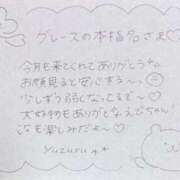 グレースの本指名さま♡
今月も来てくれてありがとう
お顔見ると安心する〜。
少しずつ弱くなってるで〜♡
大好物もありがとなえびちゃん♡
次も楽しみだよ〜♡
yuzuru